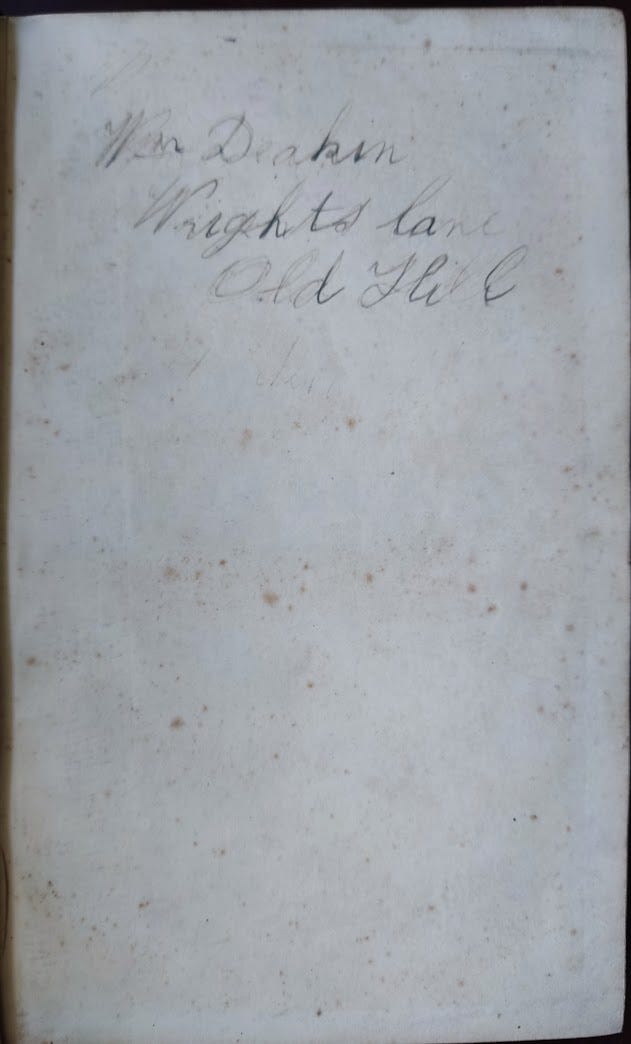 Wm Deakin
Wrights lane
Old Hill